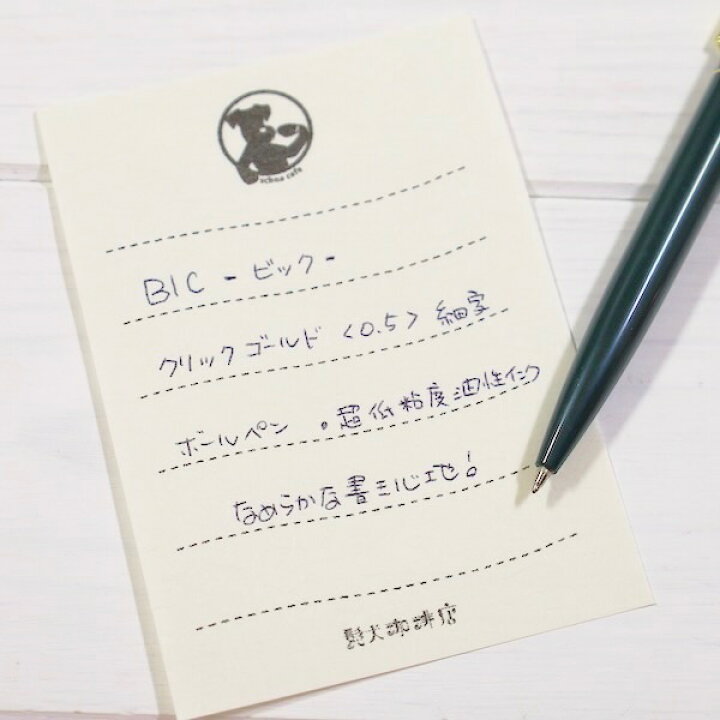 BIC - ビック -
クリックゴールド <0.5> 細字
ボールペン 。超低粘度油性インク
なめらかな書き心地!
髭犬珈琲店